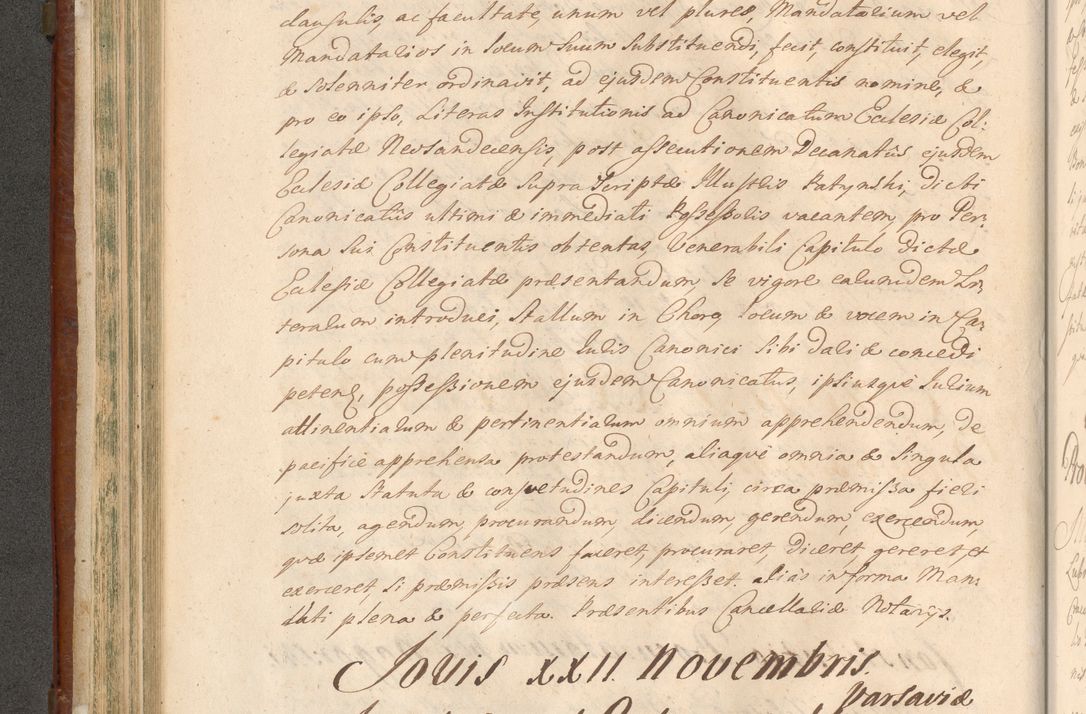 clausulis, ac facultate, unum vel plures, Mandatarium vel
Mandatarios in locum suum substituendi, fecit, constituit, elegit,
& solenniter ordinavit, ad ejusdem Constituentis nomine, &
pro eo ipso, Literas Institutionis ad Canonicatum Ecclesiæ Col:
legiatæ Neosandecensis, post assecutionem Decanatûs ejusdem
Ecclesiæ Collegiatæ supra scriptæ Illustris Ratynski, dicti
Canonicatûs ultimi & immediati Possessoris vacantem, pro Per:
sona sui Constituentis obtentas, Venerabili Capitulo dictæ
Ecclesiæ Collegiatæ præsentandum, se vigore earumdem Li:
terarum introduci, Stallum in Choro, locum & vocem in Ca:
pitulo cum plenitudine Juris Canonici sibi dari & concedi
petend, possessionem ejusdem Canonicatus, ipsiusque Jurium
attinentiarum & pertinentiarum omnium apprehendendum, de
pacifice apprehensa protestandum, aliaque omnia & singula
juxta Statuta & consvetudines Capituli, circa præmissa fieri
solita, agendum, procurandum, dicendum, gerendum, exercendum,
quæ ipsemet Constituens faceret, procuraret, diceret, gereret, et
exerceret, si præmissis præsens interesset. alias in forma Man:
dati plena & perfecta. Præsentibus Cancellariæ Notarijs.
Jovis XXII Novembris.
Varsaviæ